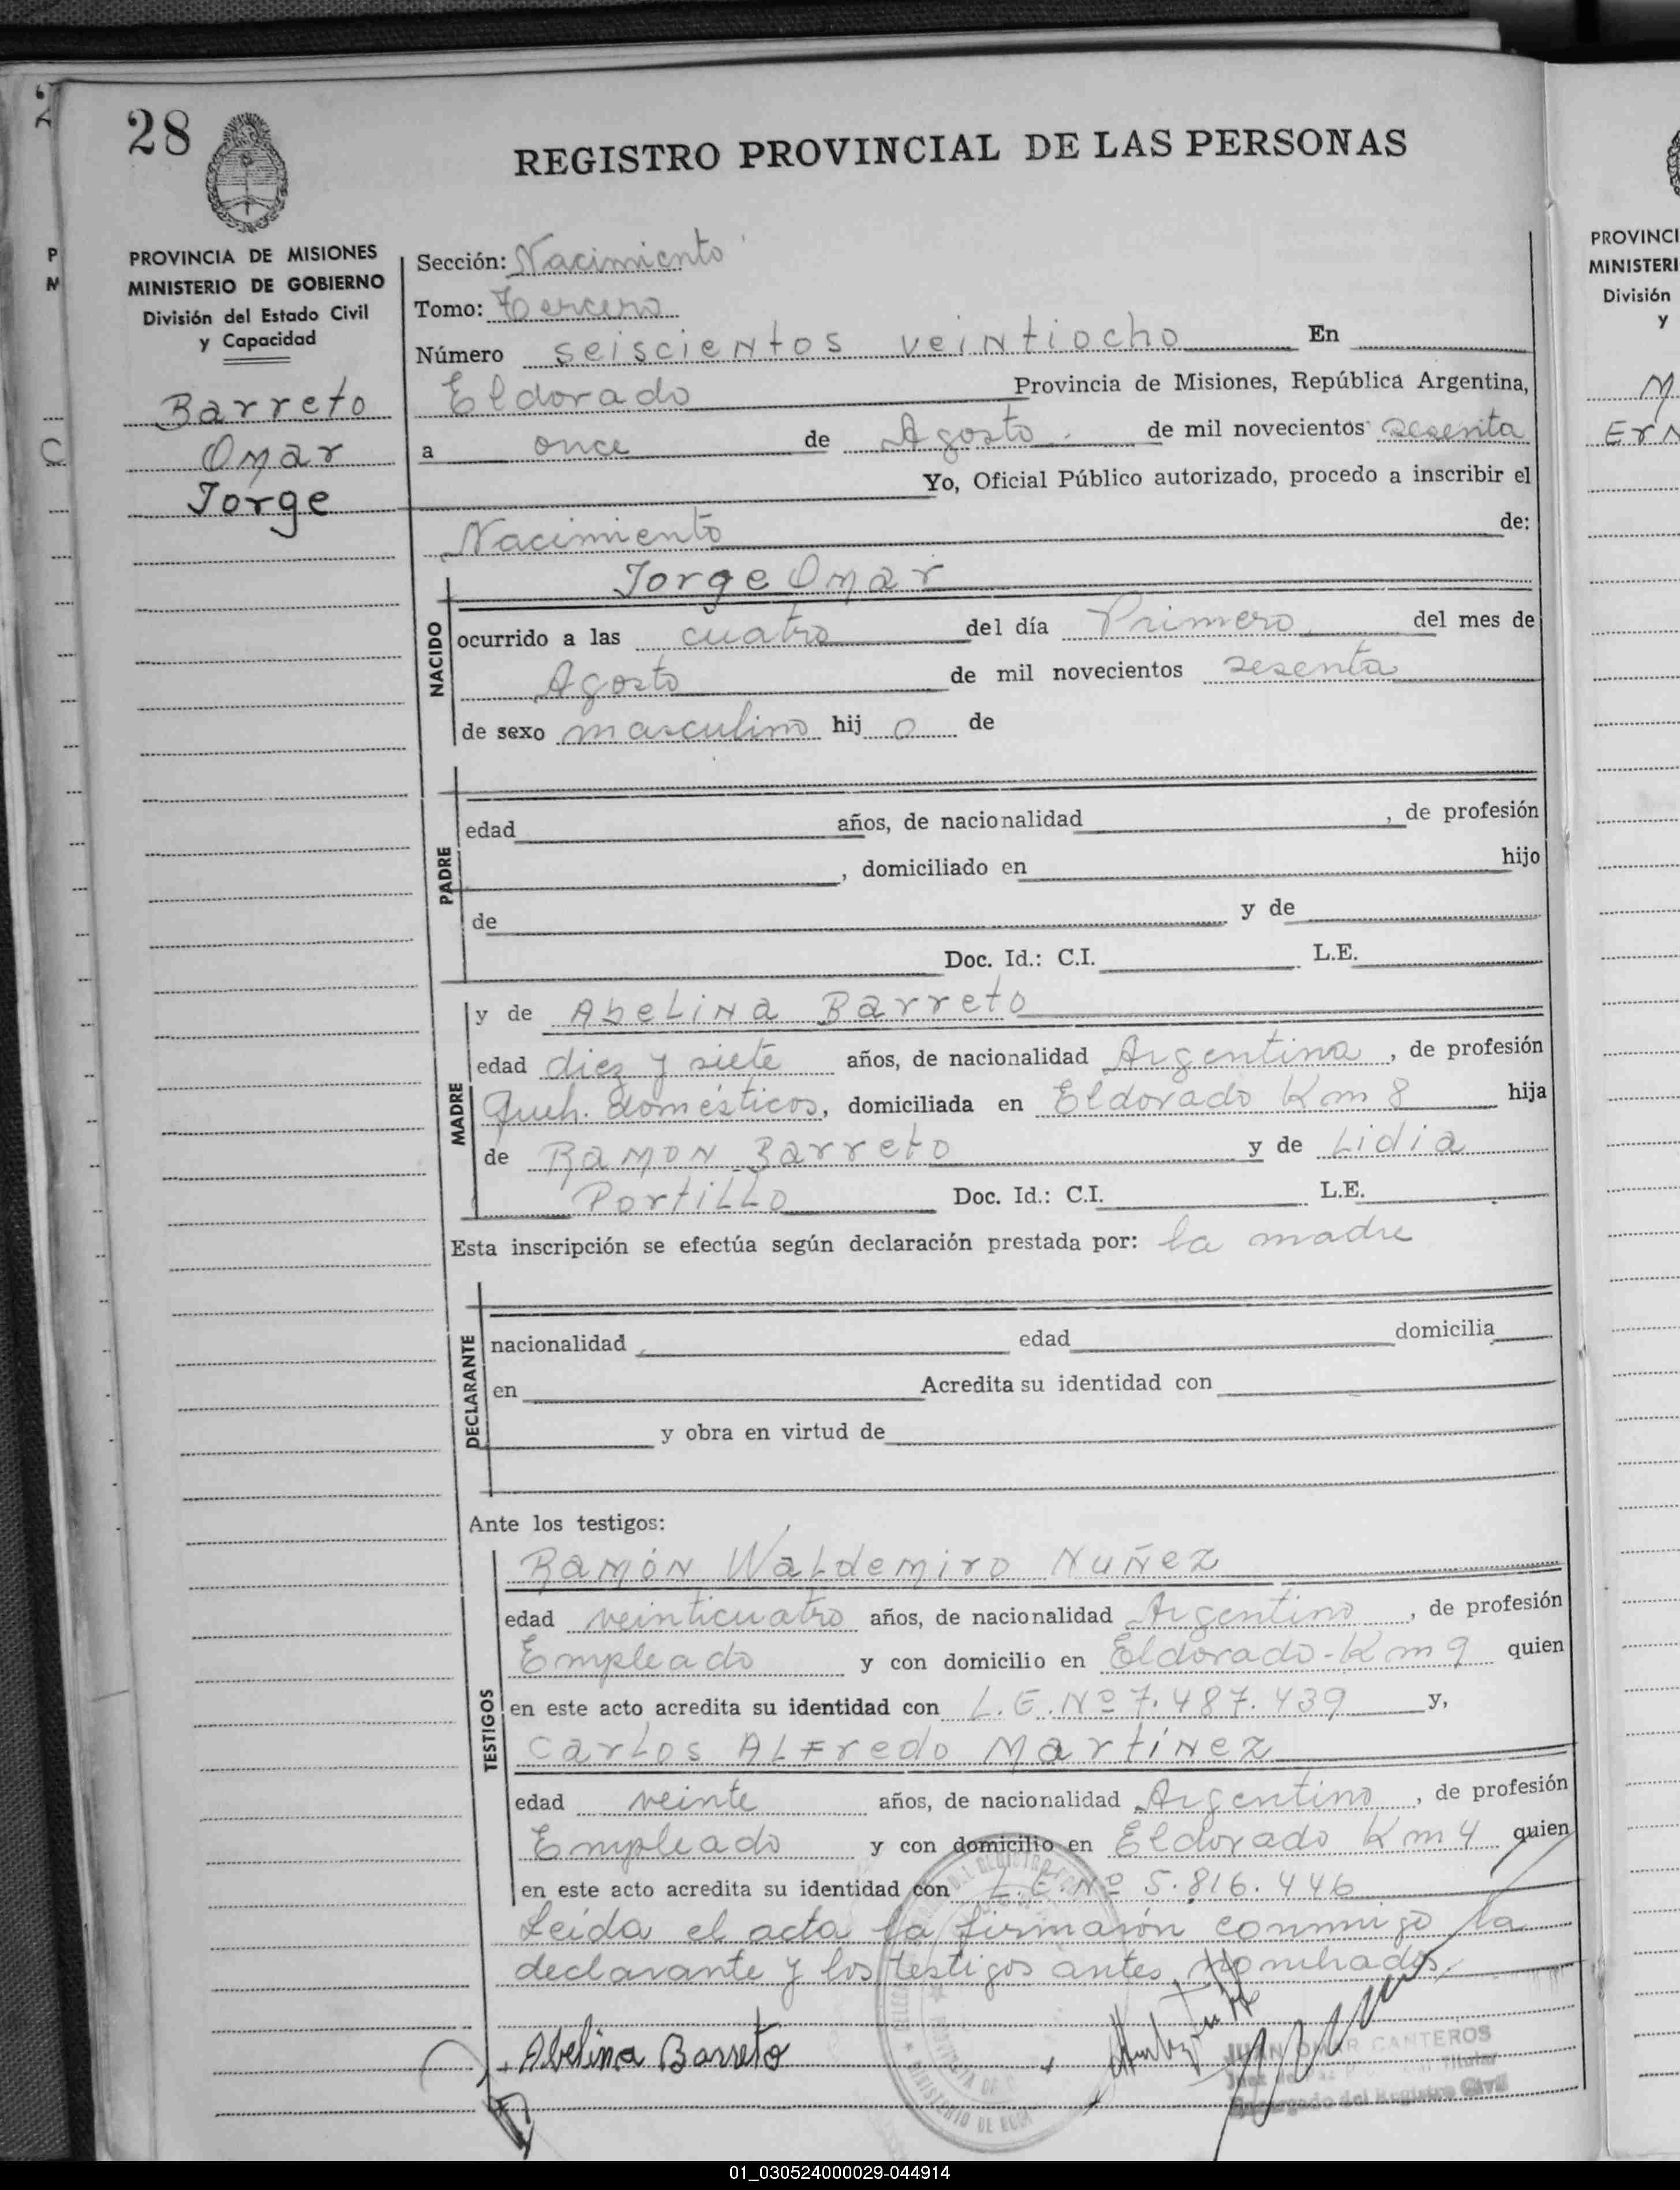 28
REGISTRO PROVINCIAL DE LAS PERSONAS
PROVINCIA DE MISIONES
MINISTERIO DE GOBIERNO
División del Estado Civil
y Capacidad
Barreto
Omar
Jorge
Sección: Nacimiento
Tomo: Tercero
Número seiscientos veintiocho En
Eldorado Provincia de Misiones, República Argentina,
a once de Agosto de mil novecientos sesenta
Yo, Oficial Público autorizado, procedo a inscribir el
Nacimiento de:
NACIDO
Jorge Omar
ocurrido a las cuatro del día Primero del mes de
Agosto de mil novecientos sesenta
de sexo masculino hij o de
PADRE
edad años, de nacionalidad , de profesión
, domiciliado en hijo
de y de
Doc. Id.: C.I. L.E.
MADRE
y de Abelina Barreto
edad diez y siete años, de nacionalidad Argentina, de profesión
Queh. domésticos, domiciliada en Eldorado Km 8 hija
de Ramon Barreto y de Lidia
Portillo Doc. Id.: C.I. L.E.
Esta inscripción se efectúa según declaración prestada por: la madre
DECLARANTE
nacionalidad edad domicilia
en Acredita su identidad con
y obra en virtud de
Ante los testigos:
TESTIGOS
Ramón Waldemiro Nuñez
edad veinticuatro años, de nacionalidad Argentino, de profesión
Empleado y con domicilio en Eldorado-Km 9 quien
en este acto acredita su identidad con L.E. Nº 7.487.439 y,
Carlos Alfredo Martínez
edad veinte años, de nacionalidad Argentino, de profesión
Empleado y con domicilio en Eldorado Km 4 quien
en este acto acredita su identidad con L.E. Nº 5.816.446
Leída el acta la firmarón conmigo la
declarante y los testigos antes nombrados.
Abelina Barreto
JUAN OMAR CANTEROS
Juez de Paz Titular
Encargado del Registro Civil
PROVINCI
MINISTERI
División
y
01_030524000029-044914